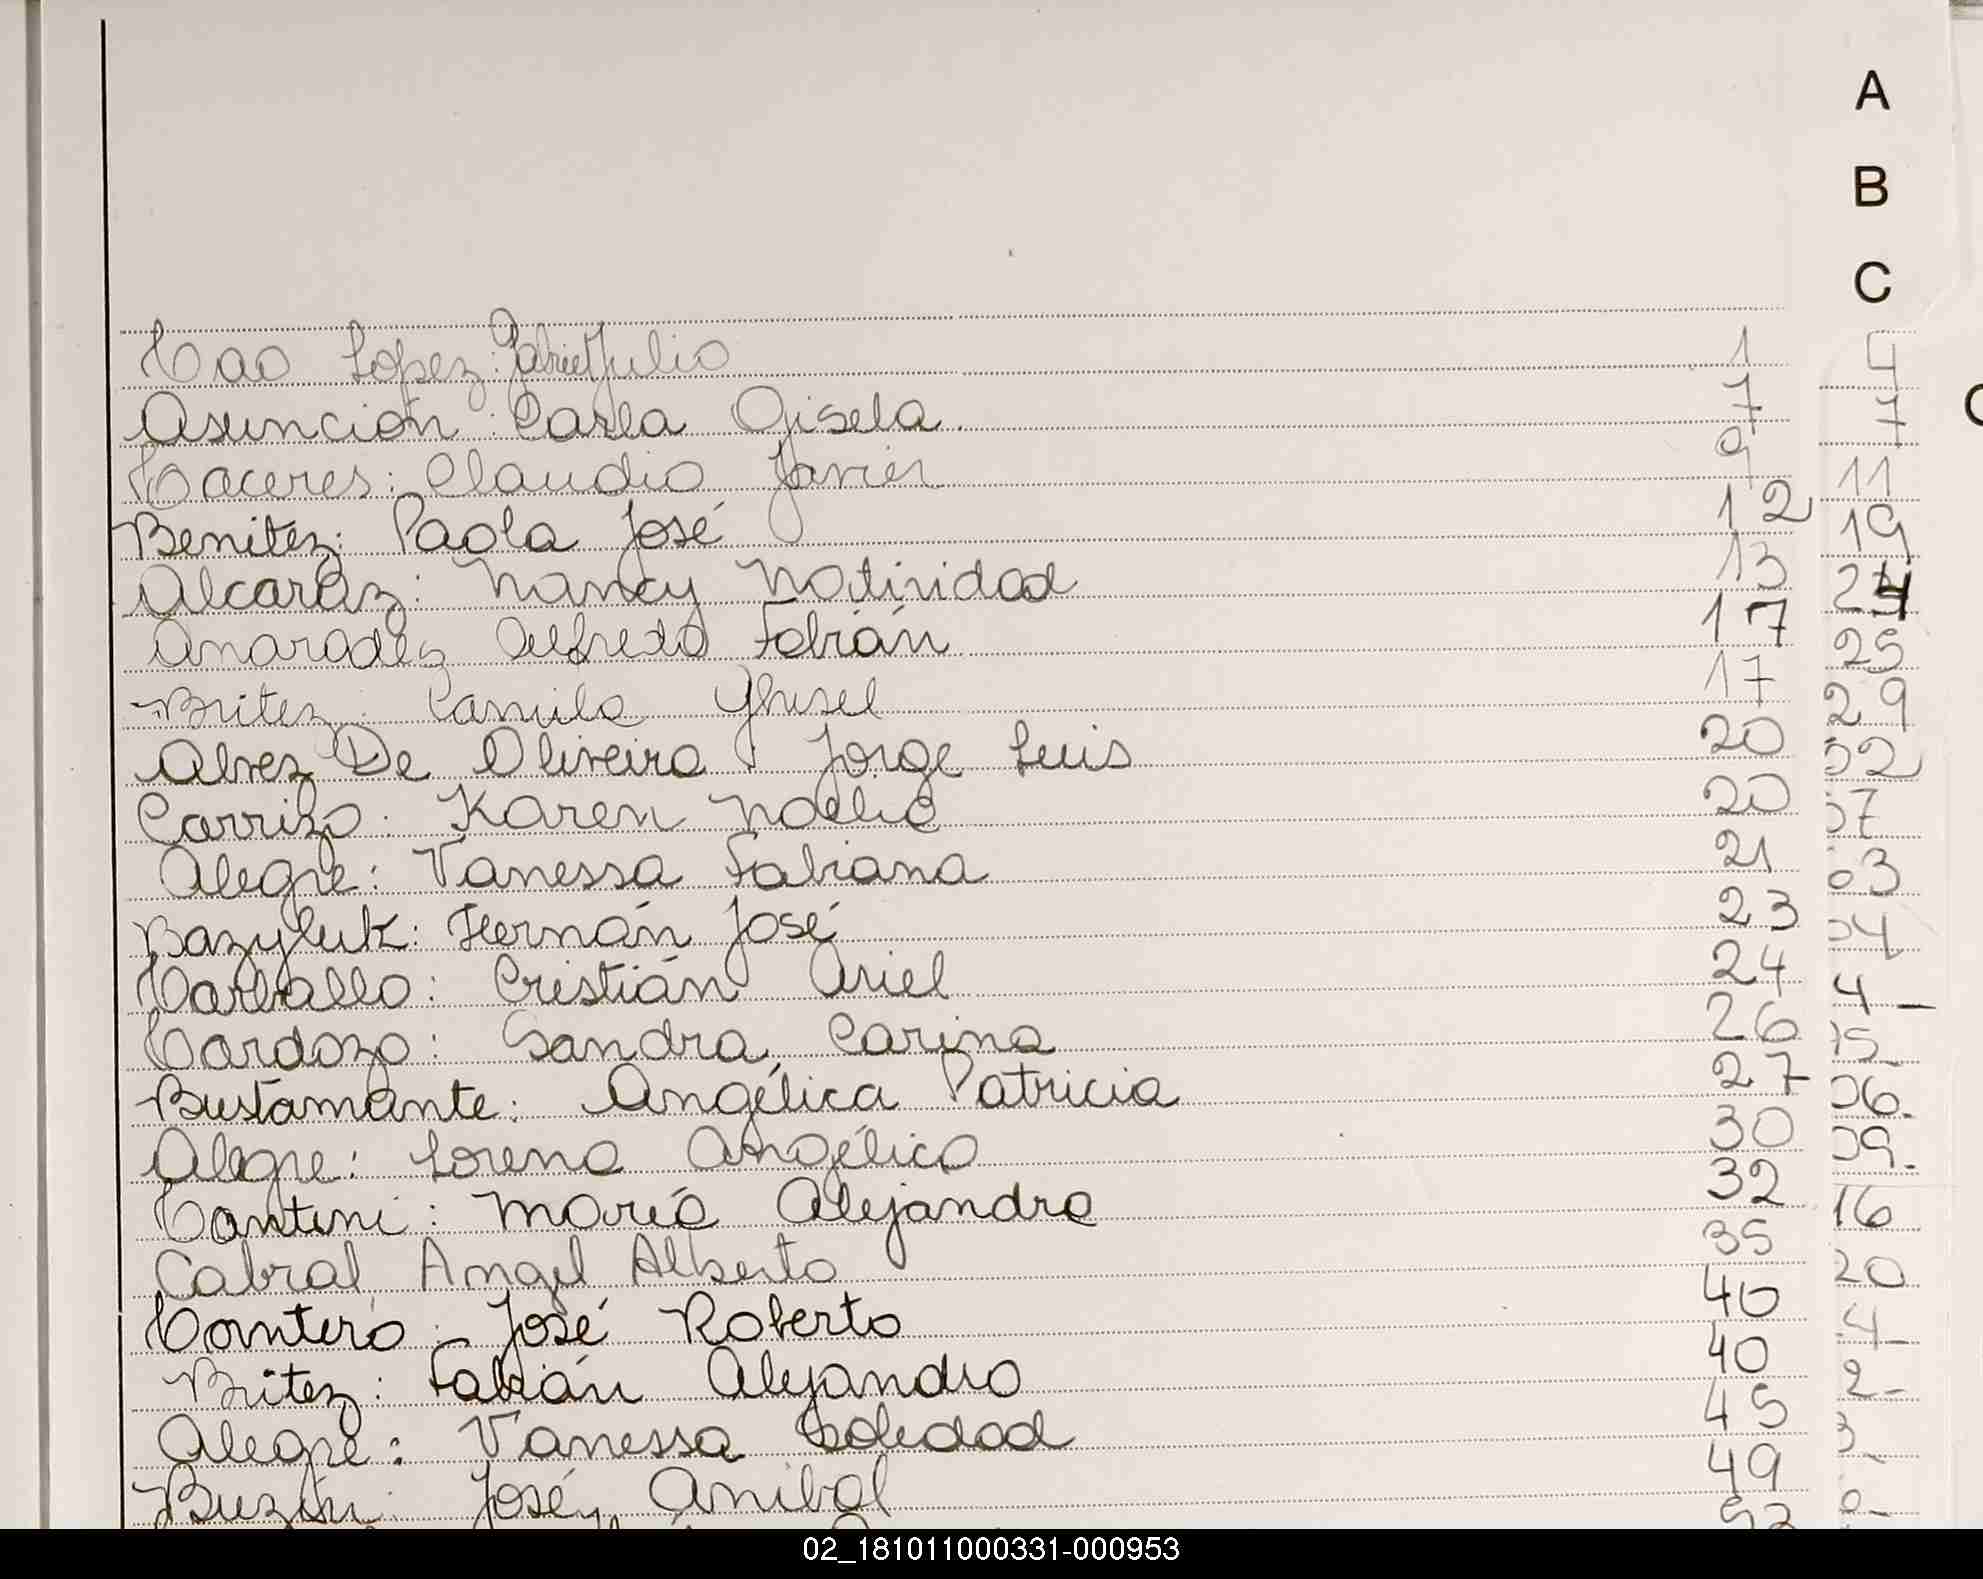 A
B
C
Cao Lopez: Gabriel Julio 1
Asunción: Carla Gisela. 7
Caceres: Claudio Javier 9
Benitez: Paola José 12
Alcaraz: Nancy Natividad 13
Alfredo Fabián 17
Britez Camila Ghisel 17
Alvez De Oliveira: Jorge Luis 20
Carrizo: Karen Noelia 20
Alegre: Vanessa Fabiana 21
Bazyluk: Hernán José 23
Carballo: Cristián Ariel 24
Cardozo: Sandra Carina 26
Bustamante: Angélica Patricia 27
Alegre: Lorena Angélica 30
Cantini: María Alejandra 32
Cabral Angel Alberto 35
Cantero José Roberto 40
Britez: Fabián Alejandro 40
Alegre: Vanessa Soledad 45
José Anibal 49
4
7
11
19
24
25
29
02
07
03
04
4 -
15
06.
09.
16
20
4-
2-
3-
02_181011000331-000953